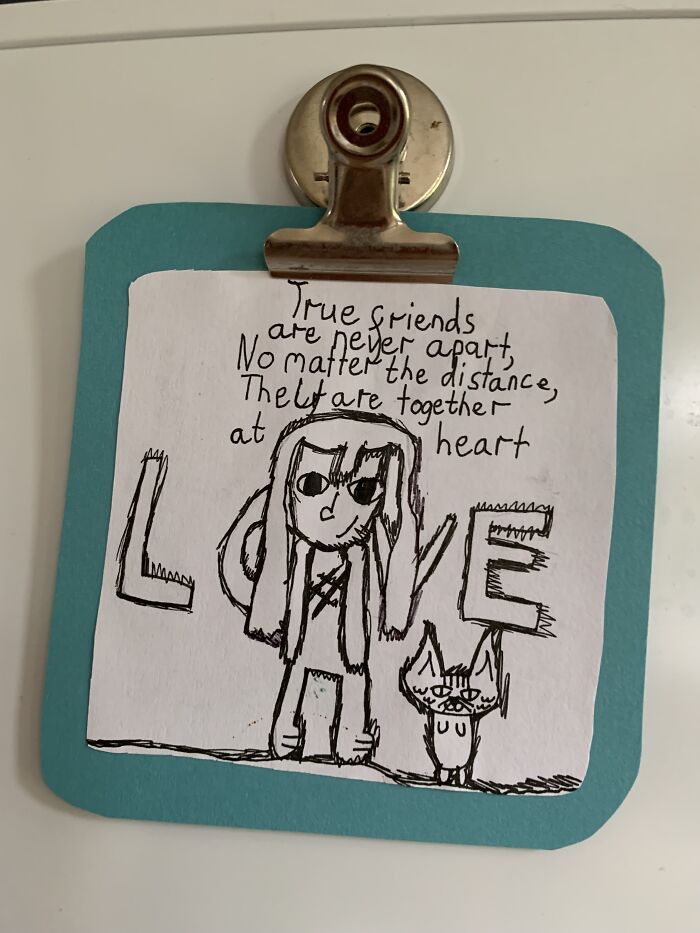 True friends
are never apart,
No matter the distance,
They are together
at heart
LOVE